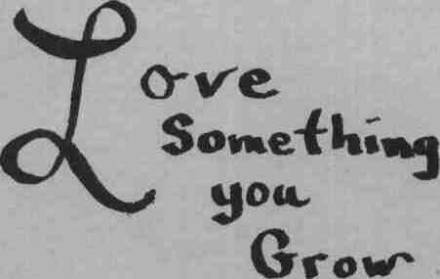 Love
Something
you
Grow